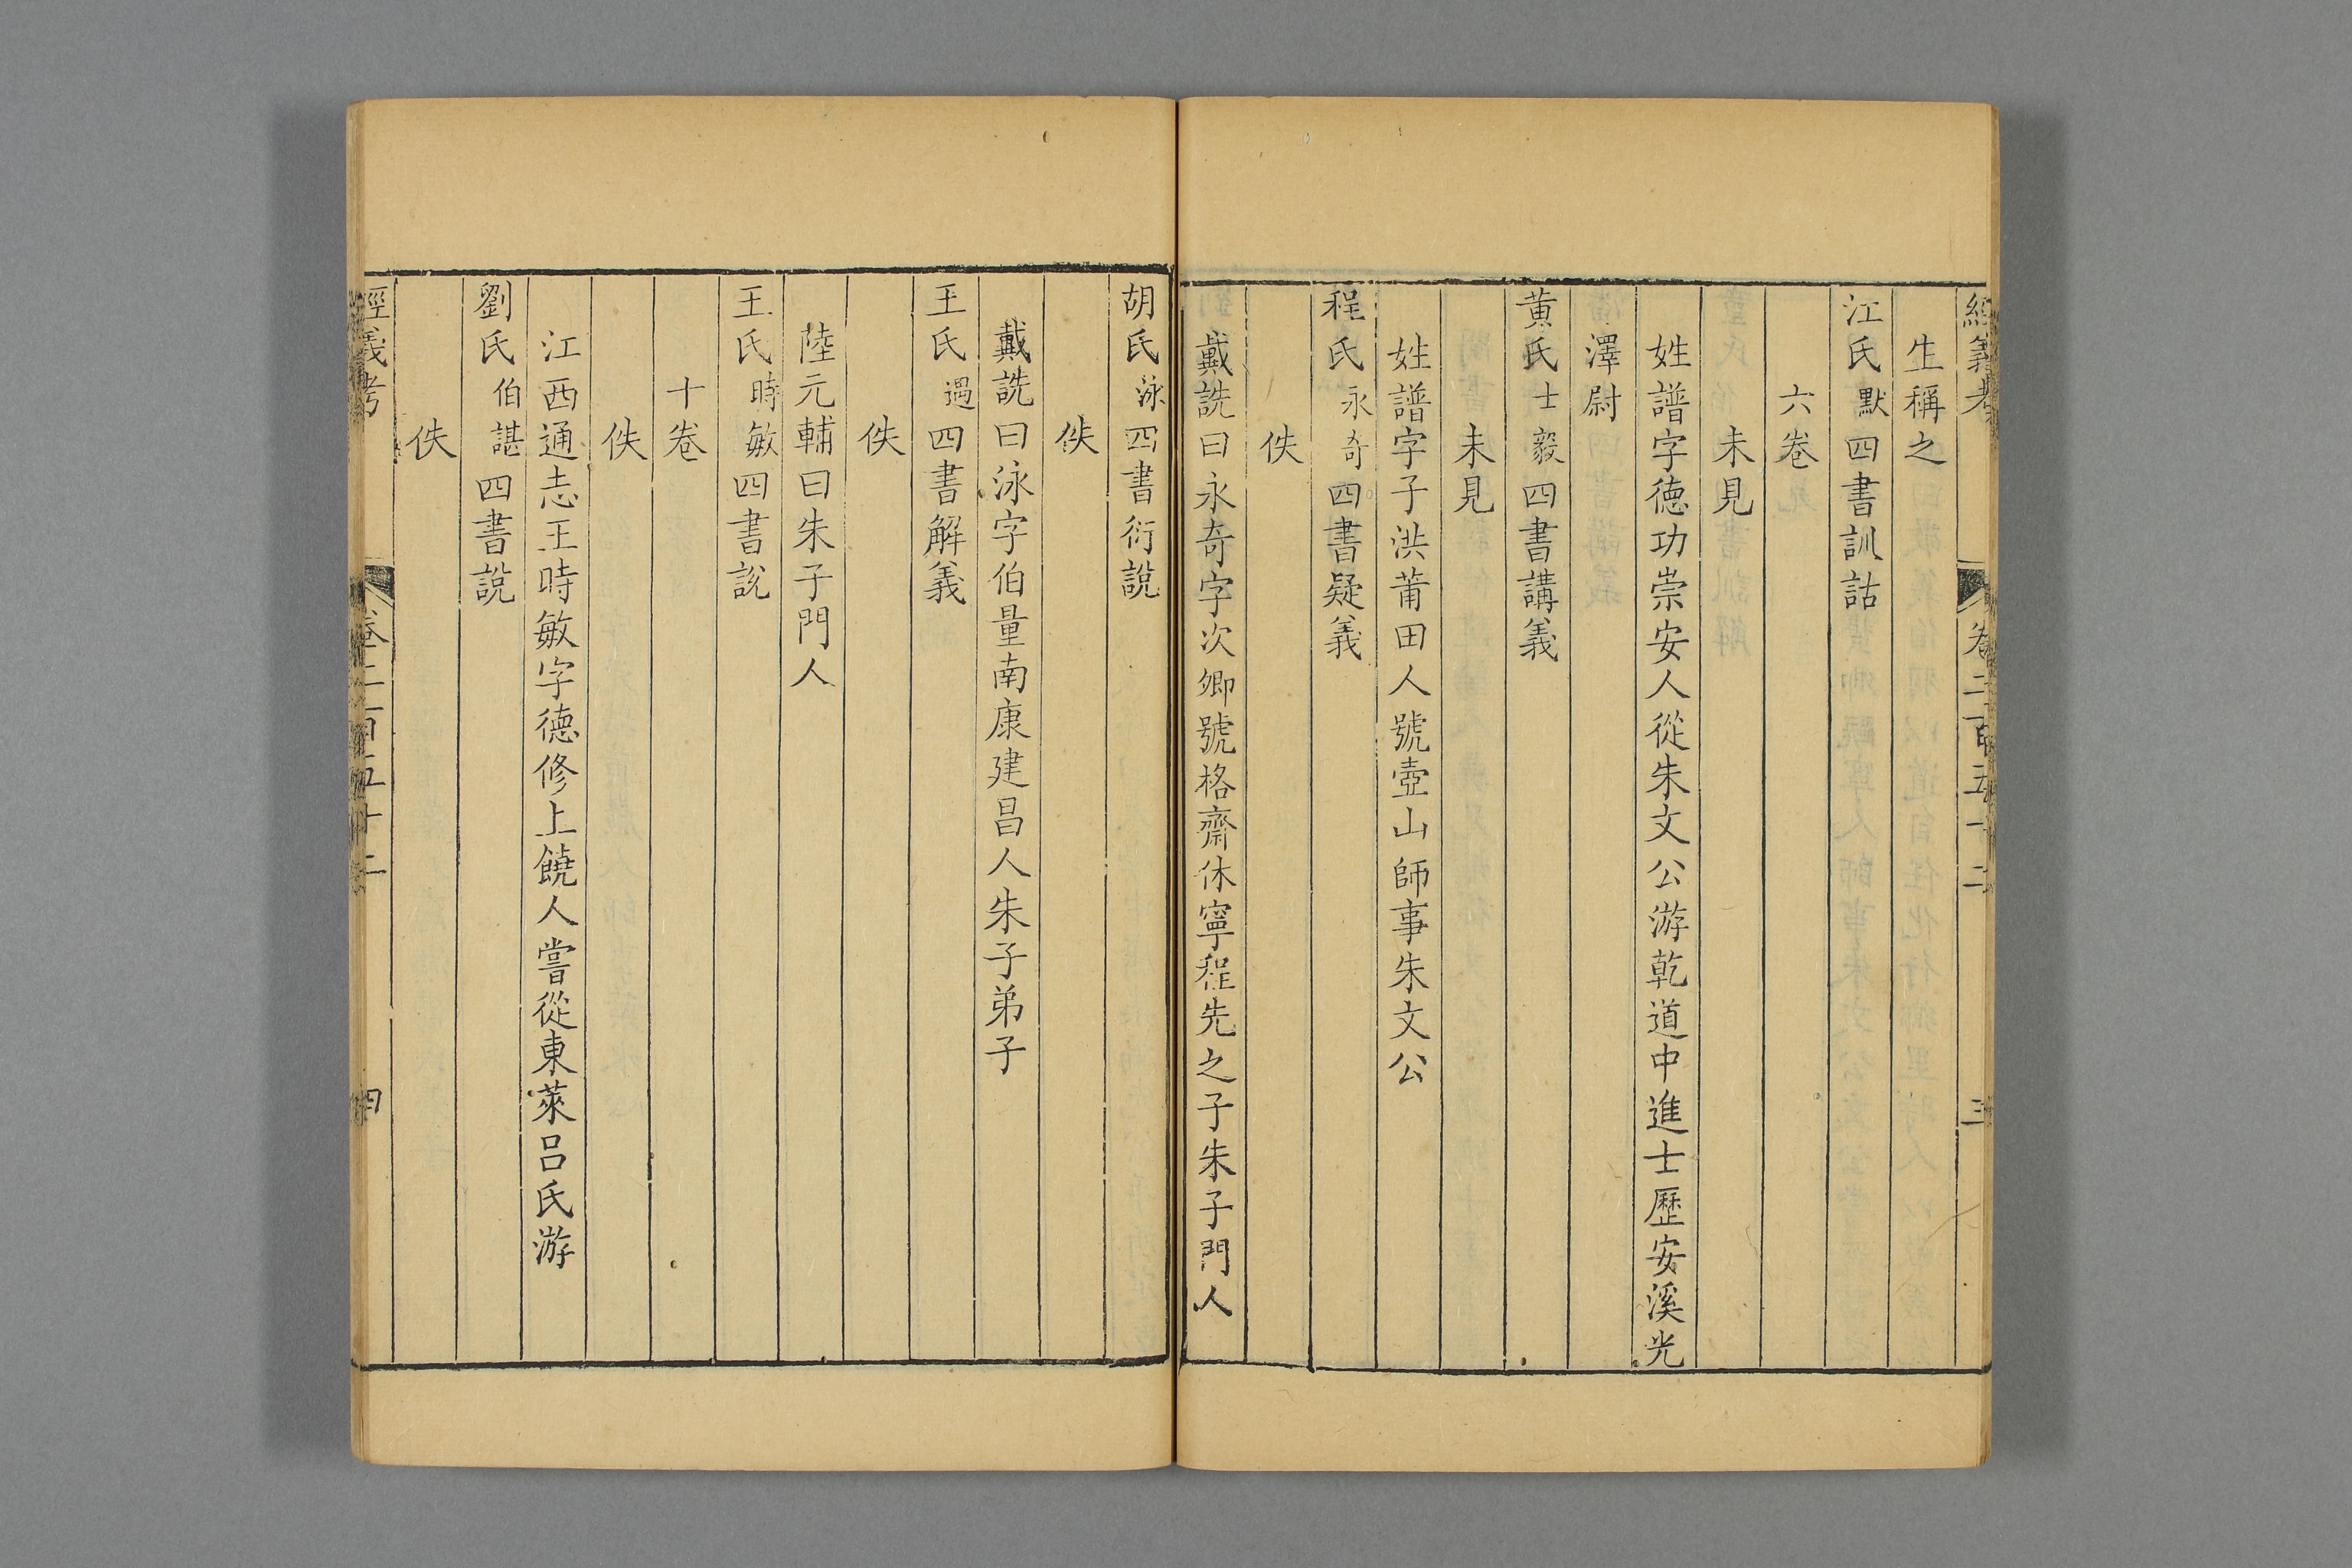 經義考 卷二百五十二 三
生稱之
江氏默四書訓詁
六卷
未見
姓譜字德功崇安人從朱文公游乾道中進士歷安溪光
澤尉
黃氏士毅四書講義
未見
姓譜字子洪莆田人號壺山師事朱文公
程氏永奇四書疑義
佚
戴詵曰永奇字次卿號格齋休寧程先之子朱子門人
胡氏泳四書衍說
佚
戴詵曰泳字伯量南康建昌人朱子弟子
王氏遇四書解義
佚
陸元輔曰朱子門人
王氏時敏四書說
十卷
佚
江西通志王時敏字德修上饒人嘗從東萊呂氏游
劉氏伯諶四書說
佚
經義考 卷二百五十二 四